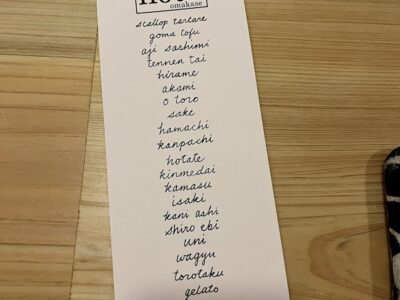 omakase
scallop tartare
goma tofu
aji sashimi
tennen tai
hirame
akami
o toro
sake
hamachi
kanpachi
hotate
kinmedai
kamasu
isaki
kani ashi
shiro ebi
uni
wagyu
torotaku
gelato